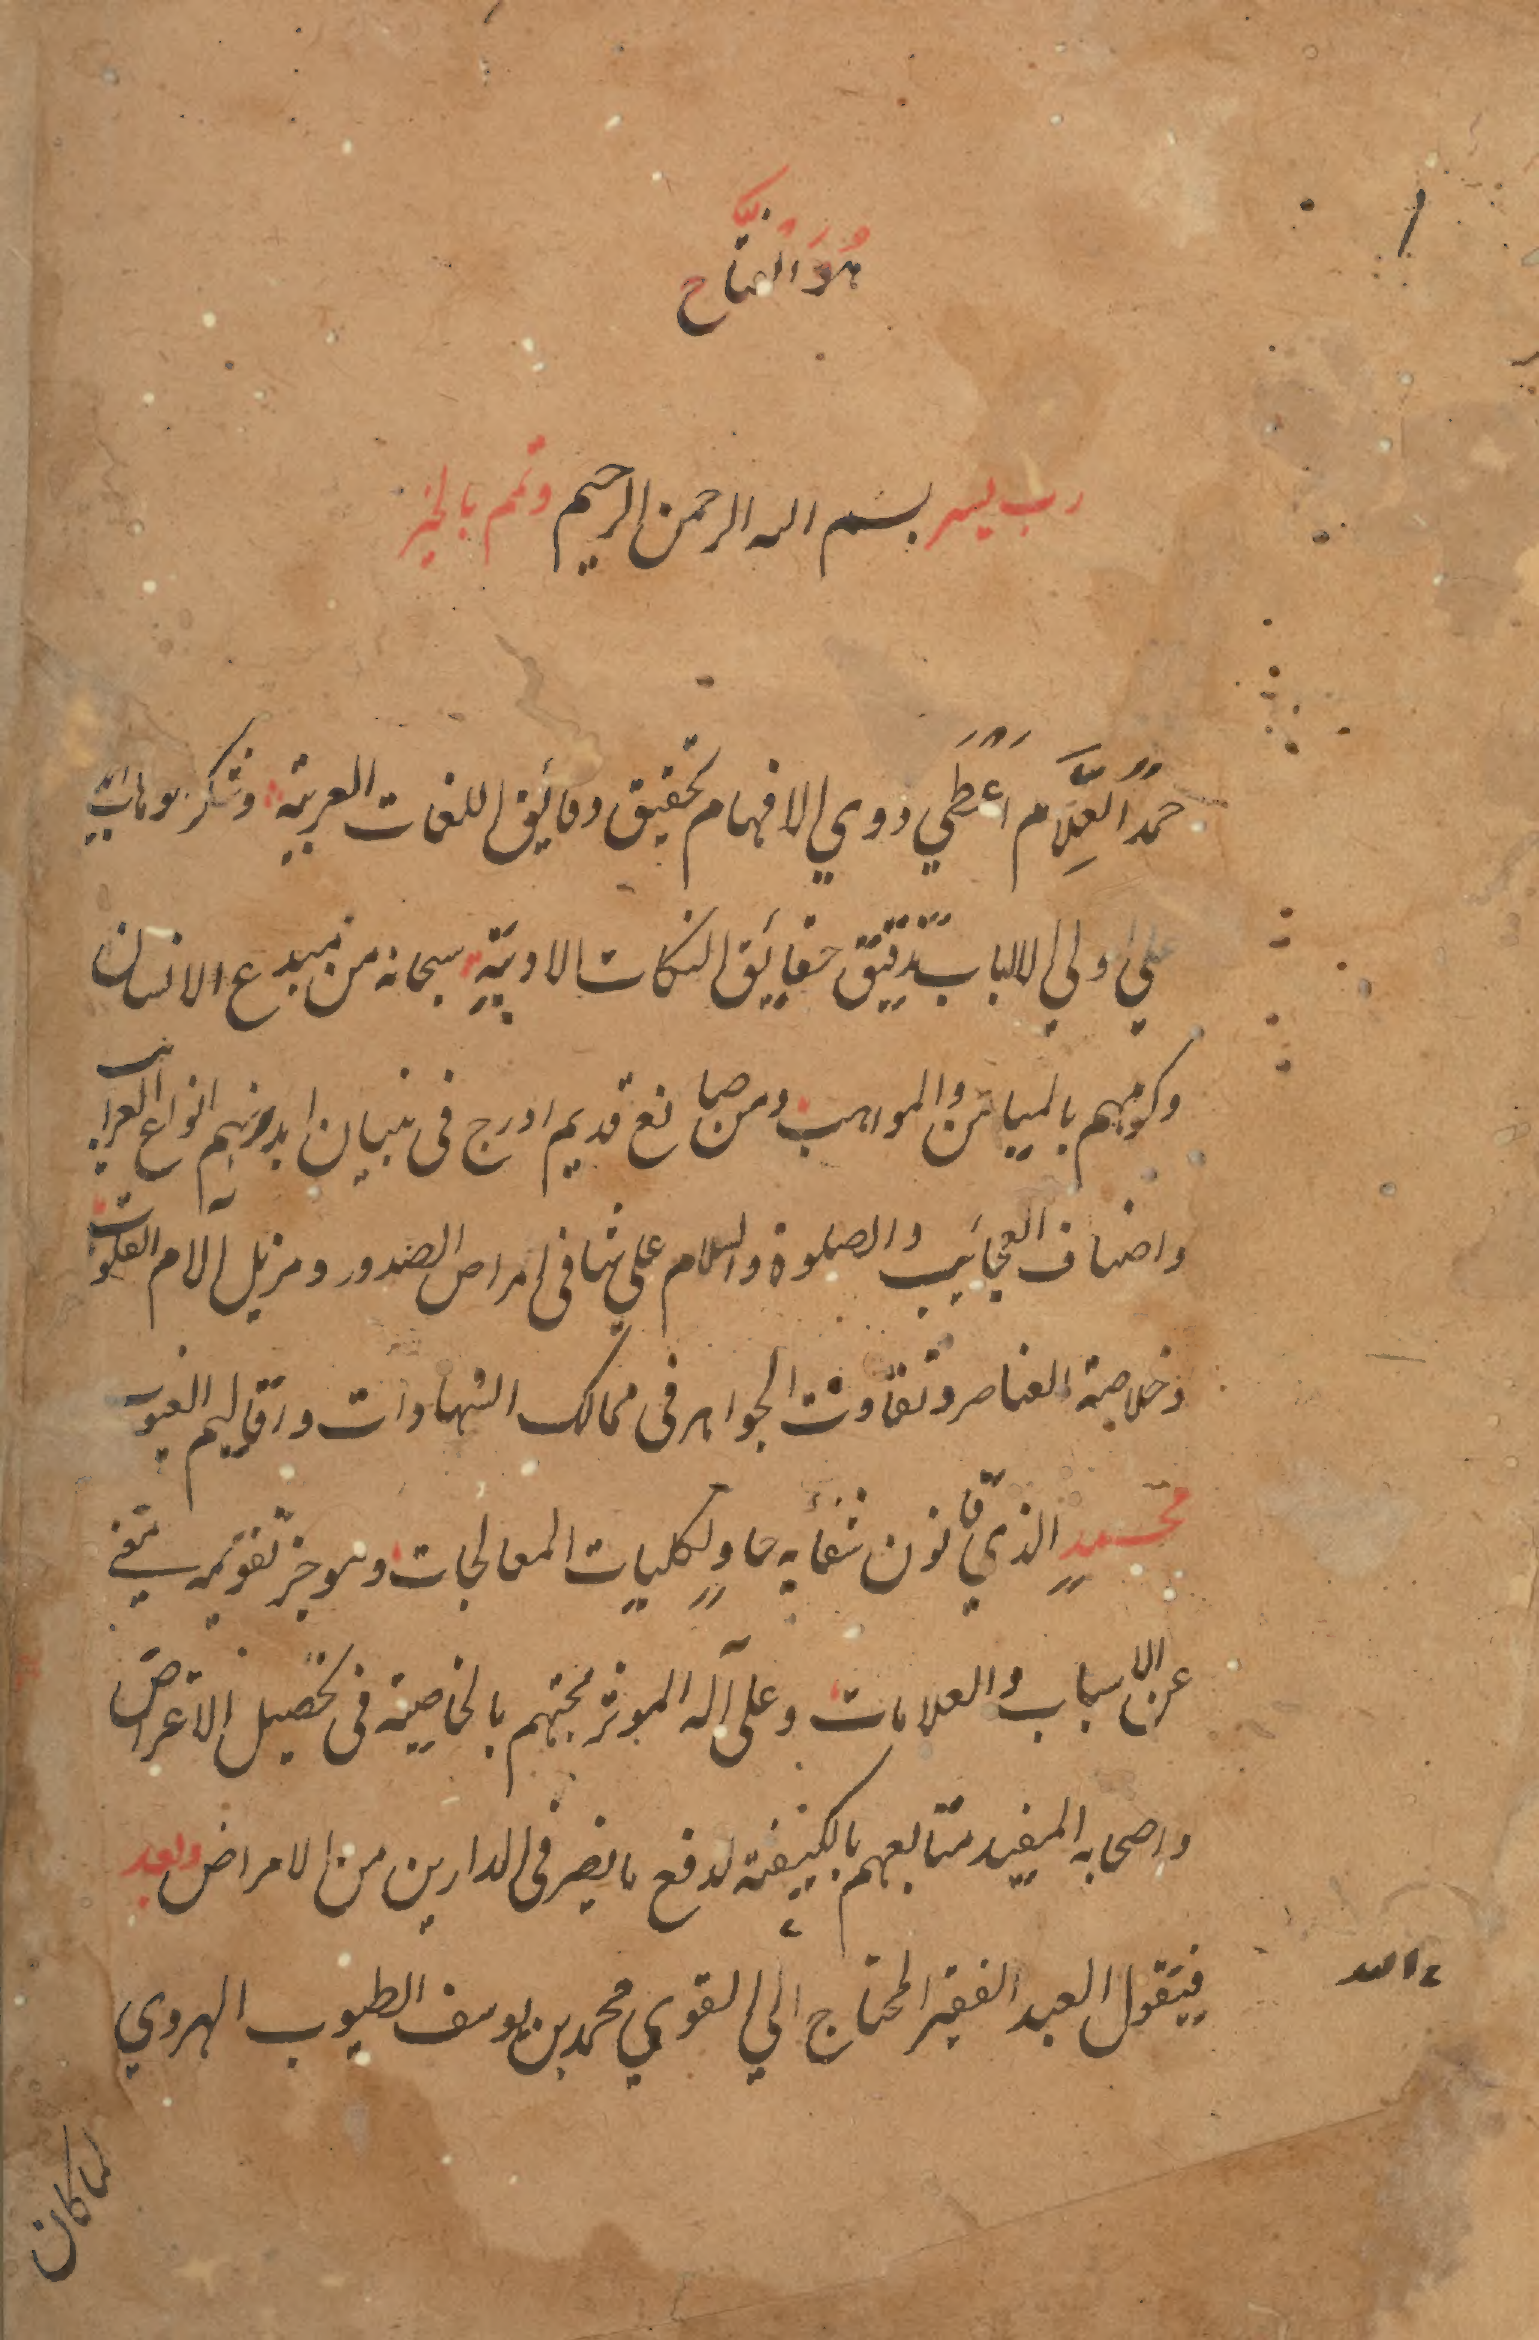 هُوَ الفتاح
رب يسر بسم الله الرحمن الرحيم وتمم بالخير
حمدًا لعلّام اَعْطَي ذوي الافهام تحقيق دقائيق اللغات العربية وشكر بوهاب
علي اولي الالباب تدقيق حقايق النكات الادبية سبحانه من مبدع الانسان
وكرمهم بالميامن والمواهب ومن صانع قديم ادرج في تبيان ابدانهم انواع الغرايب
واصناف العجائب والصلوة والسلام علي شافي امراض الصدور ومزيل آلام القلوب
وخلاصة العناصر ونقاوت الجواهر في ممالك الشهادات واقاليم الغيوب
محمدٍ الذي قانون شفائه حاوٍ لكليات المعالجات وموجز تقويمه يغني
عن الاسباب والعلامات وعلى آله الموثر محبتهم بالخاصية في تحصيل الاغراض
واصحابه المفيد متابعهم بالكيفية لدفع مايضر في الدارين من الامراض وبعد
فيقول العبد الفقير المحتاج الي القوي محمد بن يوسف الطبيب الهروي
لما كان